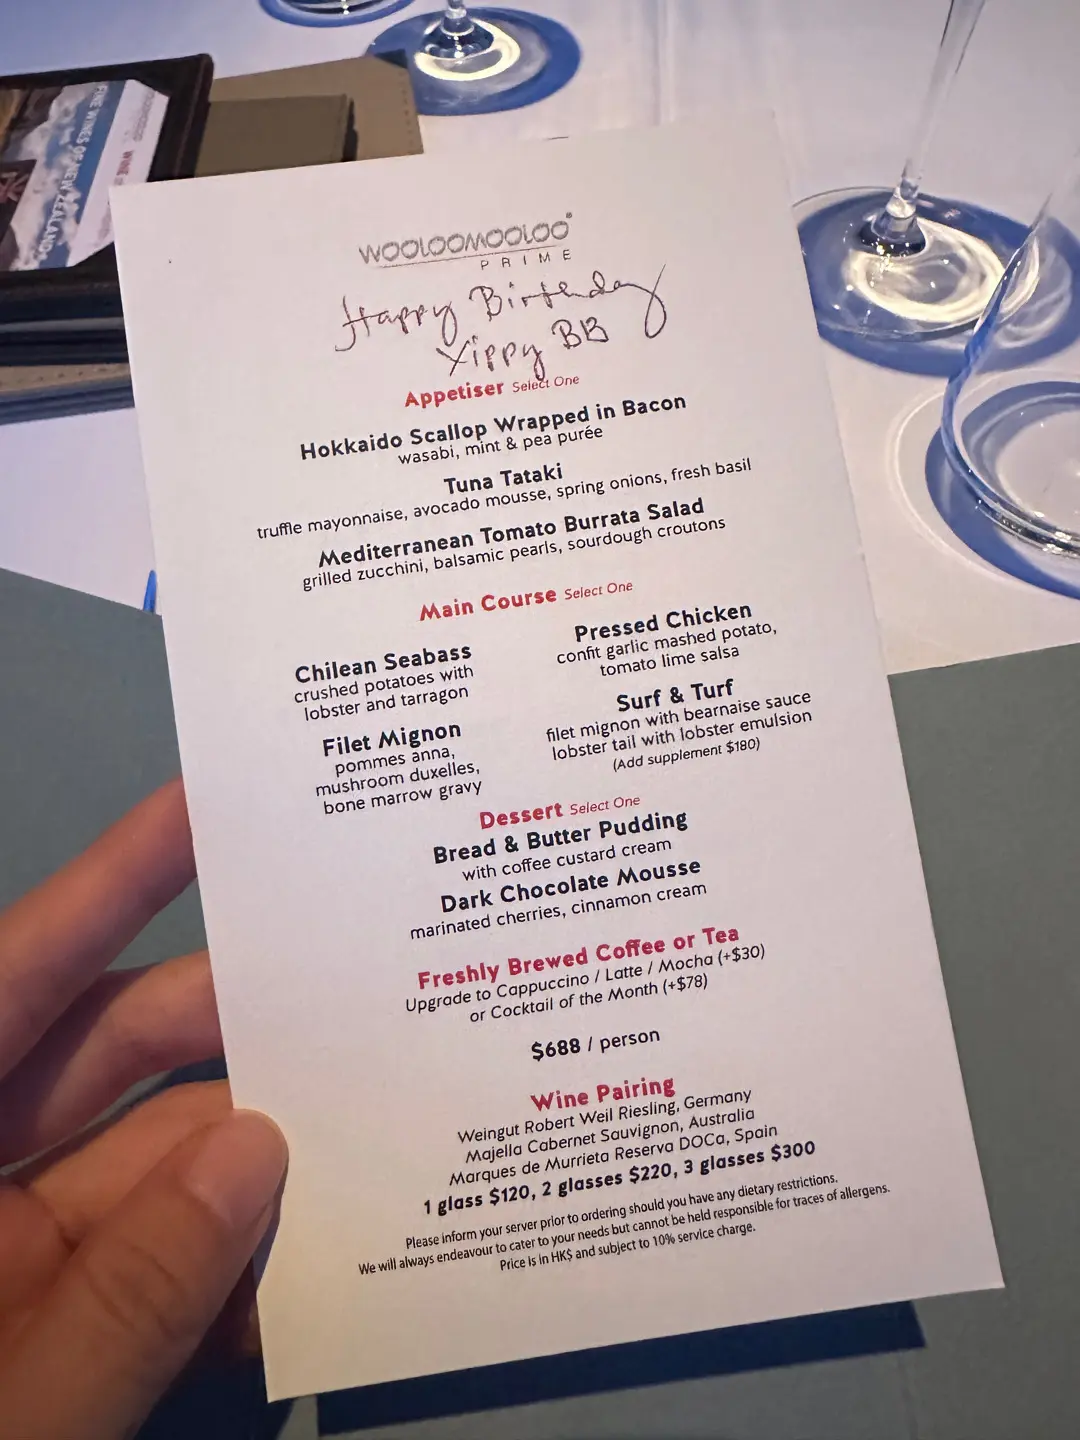 FINE WINES OF NEW ZEALAND
WINE
WOOLOOMOOLOO®
PRIME
Happy Birthday
Yippy BB
Appetiser Select One
Hokkaido Scallop Wrapped in Bacon
wasabi, mint & pea purée
Tuna Tataki
truffle mayonnaise, avocado mousse, spring onions, fresh basil
Mediterranean Tomato Burrata Salad
grilled zucchini, balsamic pearls, sourdough croutons
Main Course Select One
Chilean Seabass
crushed potatoes with
lobster and tarragon
Filet Mignon
pommes anna,
mushroom duxelles,
bone marrow gravy
Pressed Chicken
confit garlic mashed potato,
tomato lime salsa
Surf & Turf
filet mignon with bearnaise sauce
lobster tail with lobster emulsion
(Add supplement $180)
Dessert Select One
Bread & Butter Pudding
with coffee custard cream
Dark Chocolate Mousse
marinated cherries, cinnamon cream
Freshly Brewed Coffee or Tea
Upgrade to Cappuccino / Latte / Mocha (+$30)
or Cocktail of the Month (+$78)
$688 / person
Wine Pairing
Weingut Robert Weil Riesling, Germany
Majella Cabernet Sauvignon, Australia
Marques de Murrieta Reserva DOCa, Spain
1 glass $120, 2 glasses $220, 3 glasses $300
Please inform your server prior to ordering should you have any dietary restrictions.
We will always endeavour to cater to your needs but cannot be held responsible for traces of allergens.
Price is in HK$ and subject to 10% service charge.